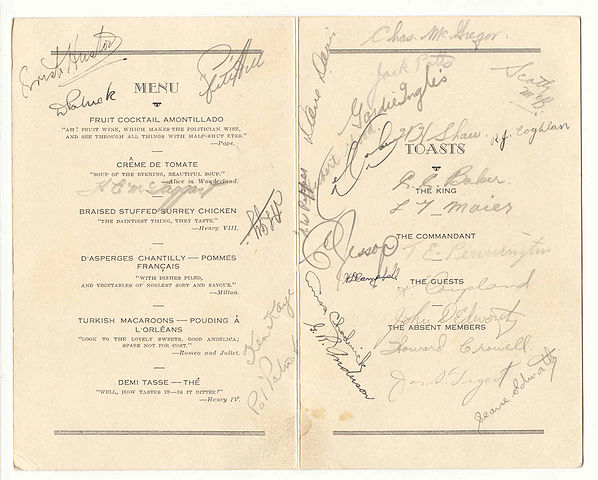 Ernest Huston
MENU
FRUIT COCKTAIL AMONTILLADO
"AH! FRUIT WINE, WHICH MAKES THE POLITICIAN WISE,
AND SEE THROUGH ALL THINGS WITH HALF-SHUT EYES."
—Pope.
CRÊME DE TOMATE
"SOUP OF THE EVENING, BEAUTIFUL SOUP."
—Alice in Wonderland.
BRAISED STUFFED SURREY CHICKEN
"THE DAINTIEST THING, THEY TASTE,"
—Henry VIII.
D'ASPERGES CHANTILLY — POMMES
FRANÇAIS
"WITH DISHES PILED,
AND VEGETABLES OF NOBLEST SORT AND SAVOUR."
—Milton.
TURKISH MACAROONS — POUDING À
L'ORLÉANS
"LOOK TO THE LOVELY SWEETS, GOOD ANGELICA;
SPARE NOT FOR COST."
—Romeo and Juliet.
DEMI TASSE — THÉ
"WELL, HOW TASTES IT—IS IT BITTER?"
—Henry IV.
Ken Kaye
Dave Davis
Chas. McGregor.
Jack Potts
Goldie Inglis
Shaw.
R.J. Coghlan
TOASTS
Baker.
THE KING
L Y Maier
Jessop
THE COMMANDANT
T E Pennington
Campbell
THE GUESTS
John S Edworthy
THE ABSENT MEMBERS
Howard Crowell
G. R. Anderson